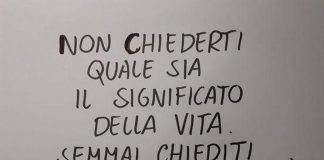 NON CHIEDERTI
QUALE SIA
IL SIGNIFICATO
DELLA VITA.
SEMMAI CHIEDITI